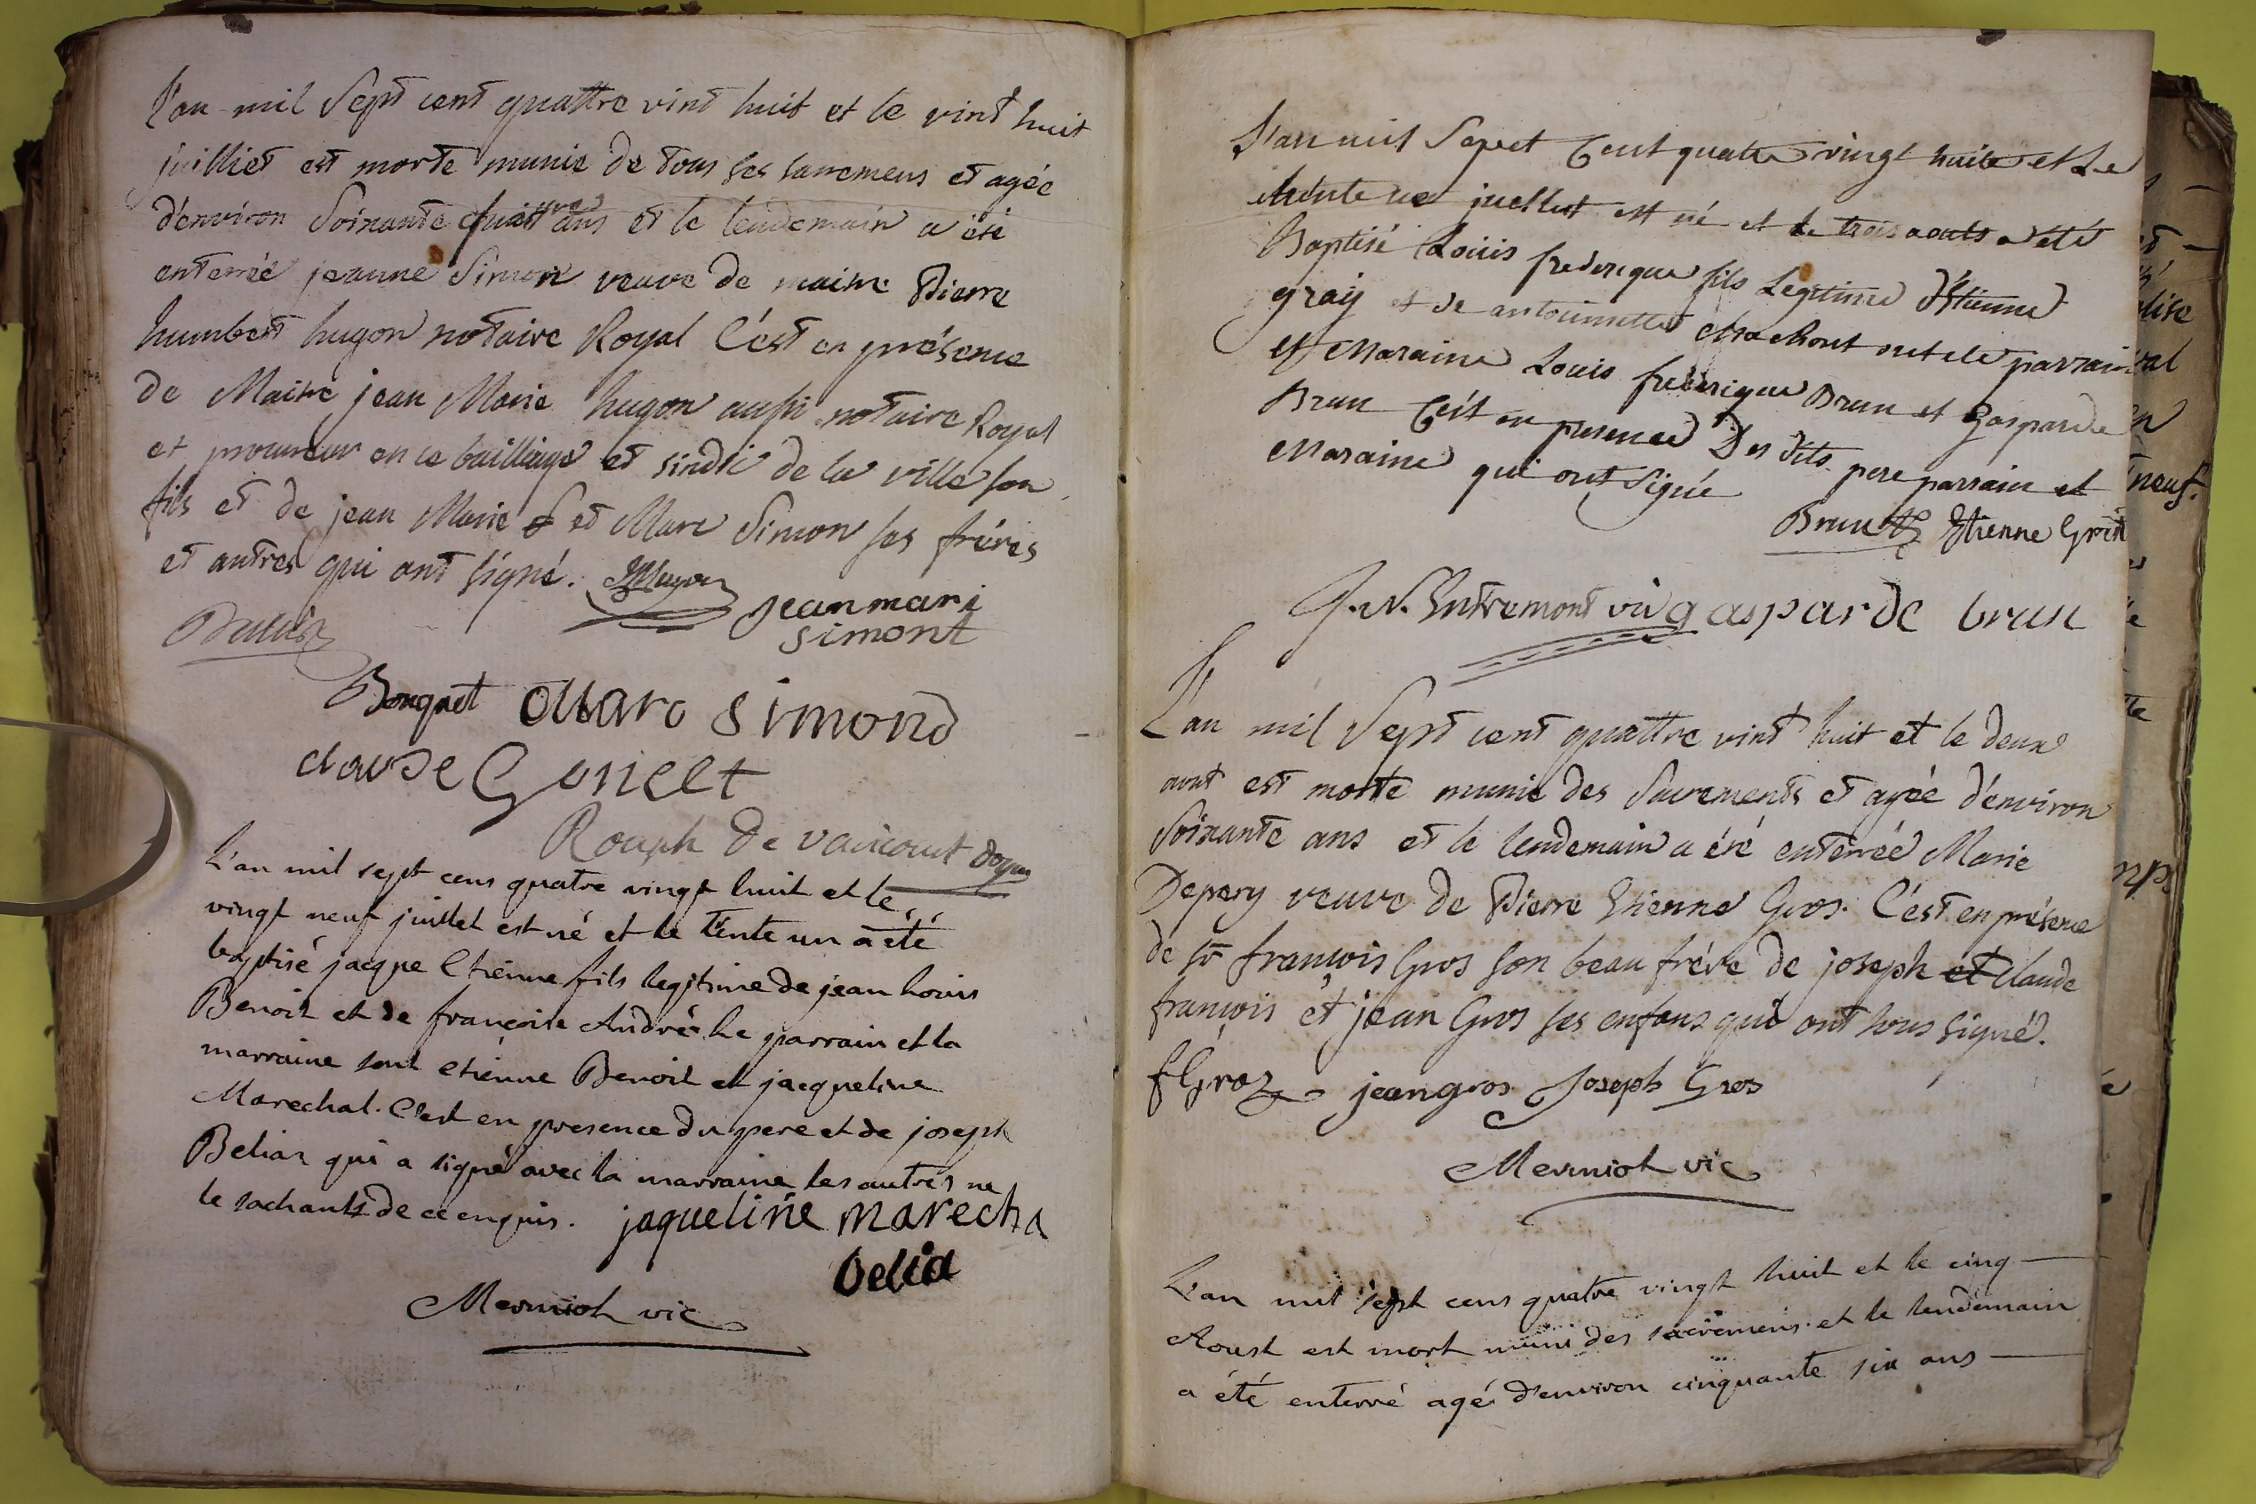 L'an mil Sept cent quattre vint huit et le vint huit
juilliet est morte munie de tous ses sacremens et agée
d'environ Soixante quattre ans et le lendemain a été
enterrée jeanne Simon veuve de maitre Pierre
humbert hugon notaire Royal C'est en présence
de Maitre jean Marie hugon aussi notaire Royal
et procureur en ce bailliage et sindic de la ville son
fils et de jean Marie et Marc Simon ses fréres
et autres qui ont signé. JMhugon
jean mari
simont
Bouquet Marc Simond
claude Goncet
Rouph de varicourt doyen
L'an mil sept cens quatre vingt huit et le
vingt neuf juillet est né et le trente un a été
baptisé jacque Etienne fils legitime de jean louis
Benoit et de françoise André. Le parrain et la
marraine sont etienne Benoit et jacqueline
Marechal. C'est en presence du pere et de joseph
Beliar qui a signé avec la marraine les autres ne
le sachants de ce enquis. jaqueline marecha
belia
Mermiot vic
L'an mil Sepet Cent quatre vingt huite et Le
trente juellet est né et le trois aouts a été
Baptisé Loüis frederique fils Legitime d'Etienne
graij et de antoinette Machont ont ete parrain
et Maraine Louis frederique Brun et gasparde
Brun C'est en presence Des dits pere parrain et
Maraine qui ont signé
Brun Etienne Groi
J. N. Entremont vic gasparde brun
L'an mil Sept cent quattre vint huit et le deux
aout est morte munie des Sacrements et agée d'environ
Soixante ans et le lendemain a été enterrée Marie
Depery veuve de Pierre Etienne Gros. C'est en présence
de sr françois Gros son beau frére de joseph et Claude
françois et jean Gros ses enfans qui ont tous signé.
f Groz jean gros Joseph Gros
Mermiot vic
L'an mil sept cens quatre vingt huit et le cinq
Aoust est mort muni des sacremens et le lendemain
a été enterré agé d'environ cinquante six ans